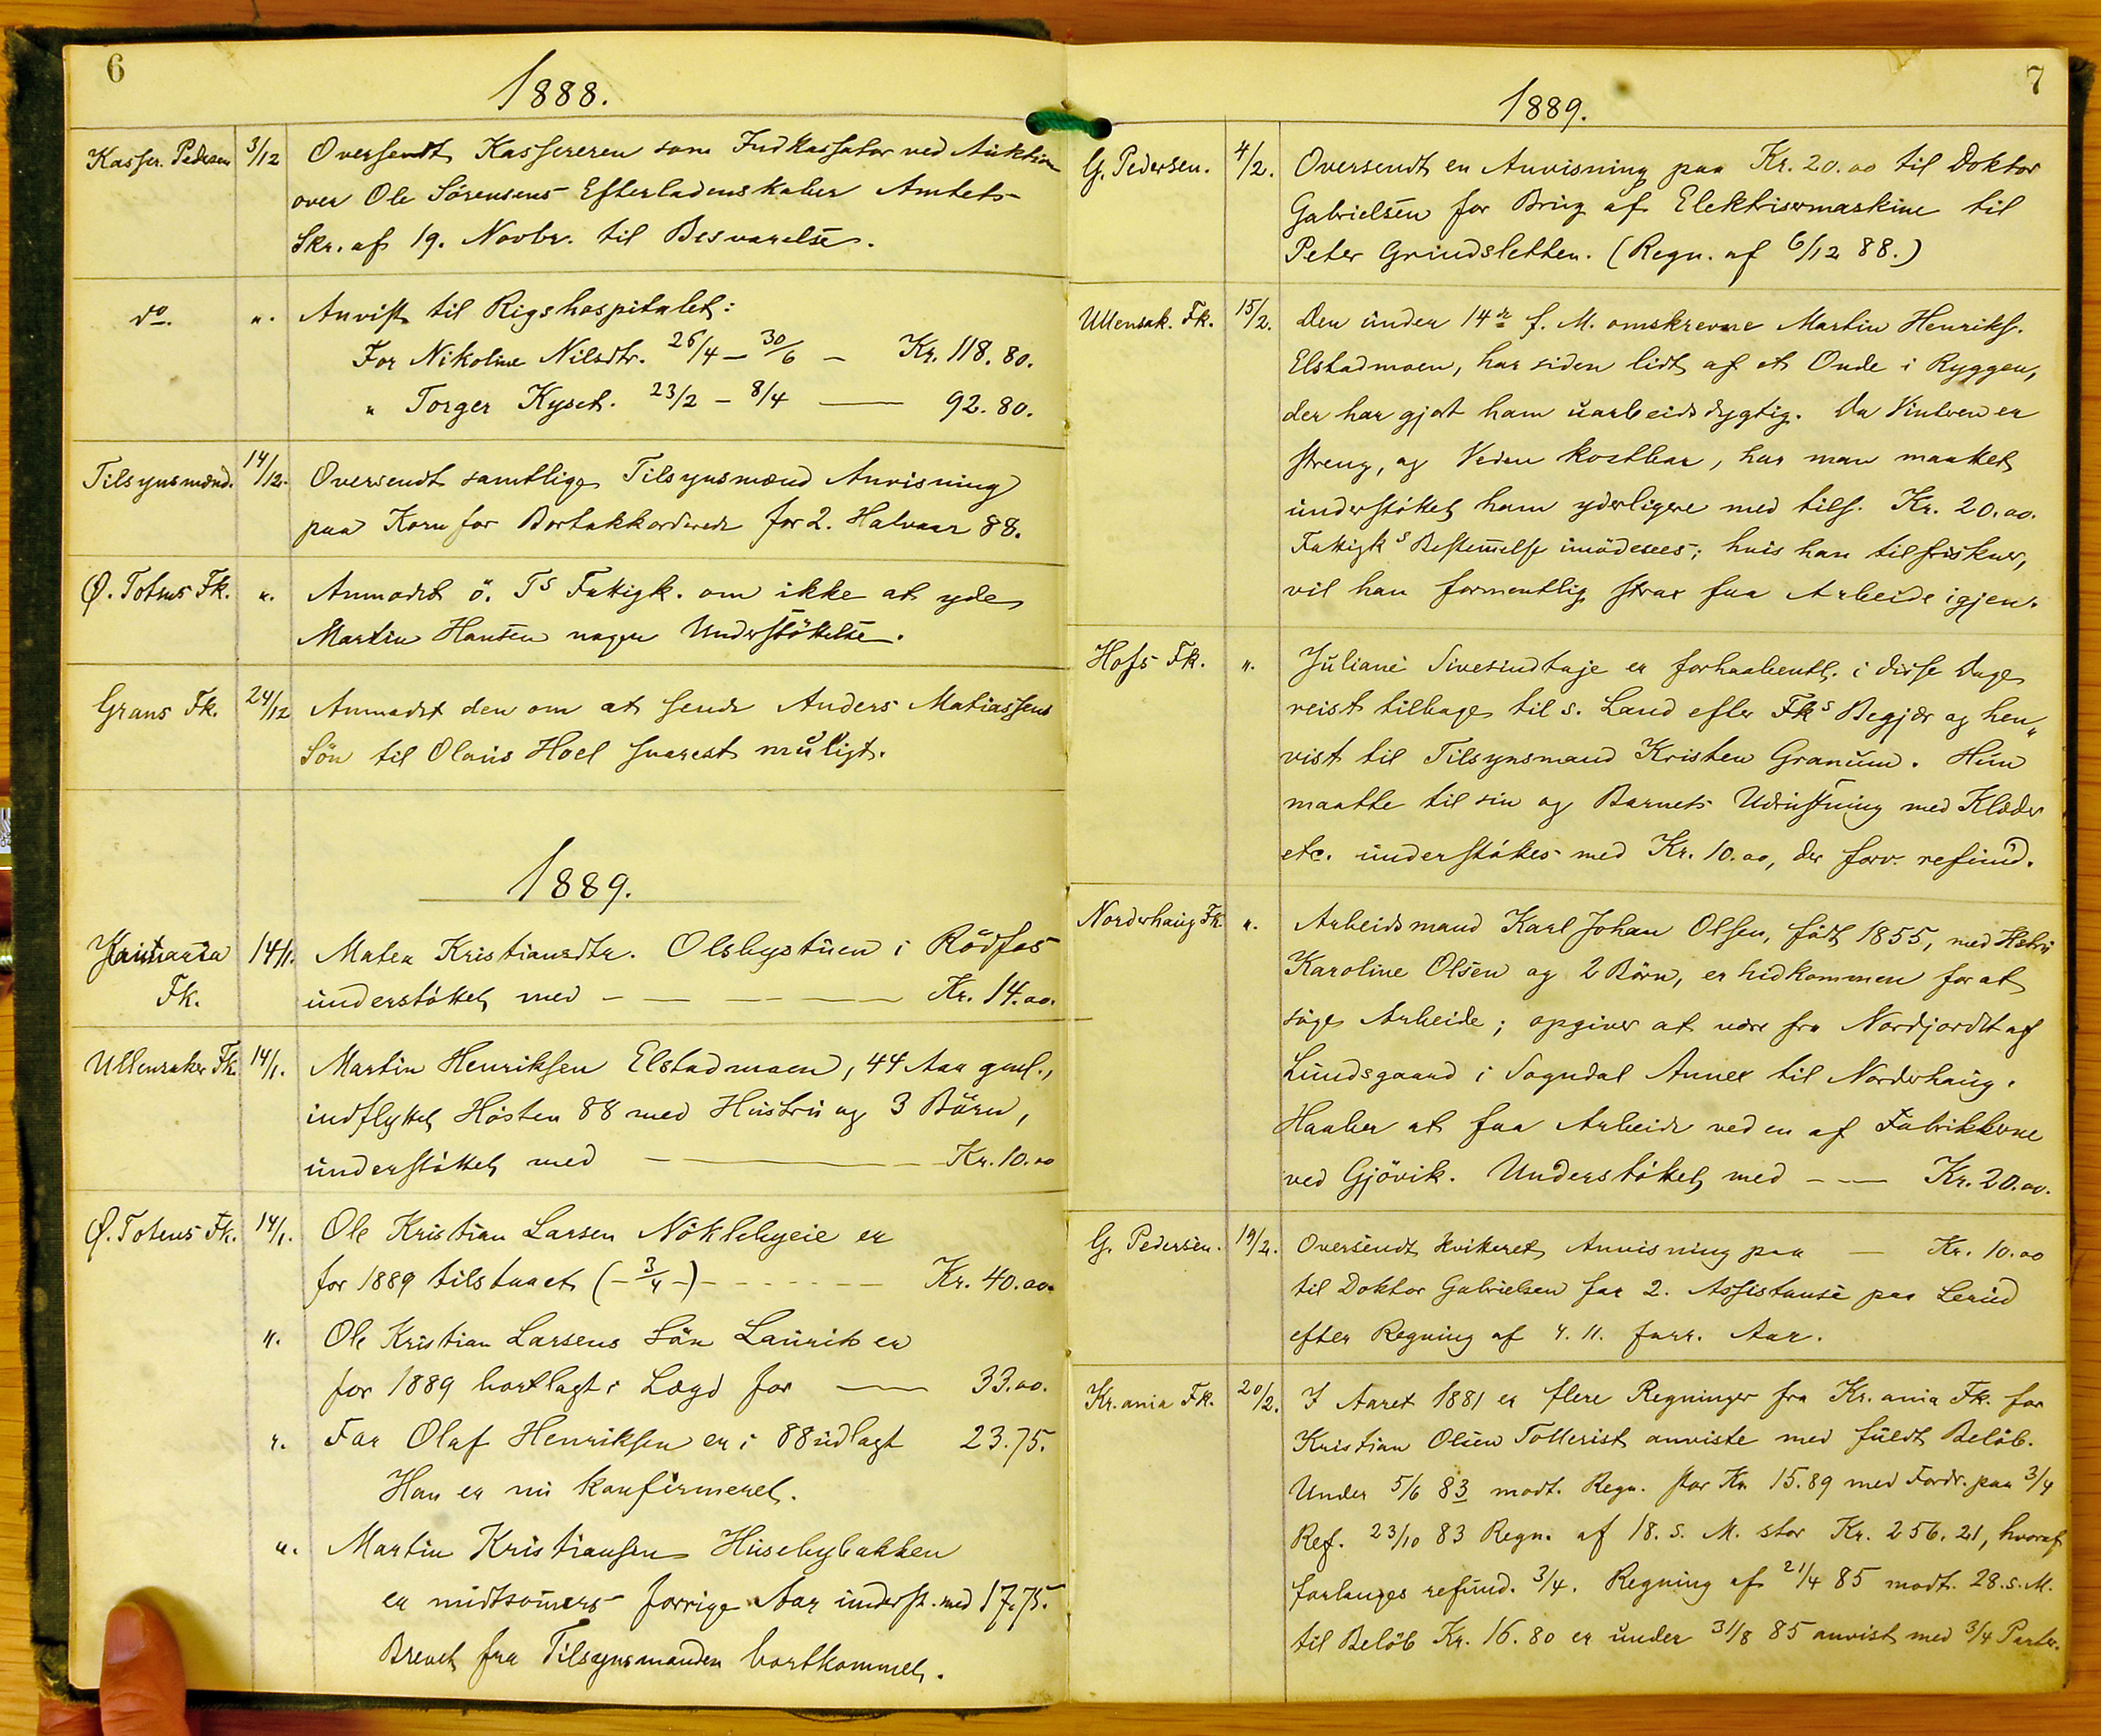 6
1888.
Kasser. Pedersen 3/12 Oversendt Kassereren som Indkassator ved Auktion
over Ole Sörensens Efterladenskaber Amtets
Skr. af 19. Novbr. til Besvarelse.
do. ". Anvist til Rigshospitalet:
For Nikoline Nilsdtr. 26/4 – 30/6 – Kr. 118.80.
" Torger Kyset. 23/2 – 8/4 — 92.80.
Tilsynsmænd. 14/12. Oversendt samtlige Tilsynsmænd Anvisning
paa Korn for Bortakkorderede for 2. Halvaar 88.
Ø. Totens Fk. ". Anmodet ö. Ts Fattigk. om ikke at yde
Martin Hansen nogen Understöttelse.
Grans Fk. 24/12 Anmodet den om at sende Anders Matiassens
Sön til Olaus Hoel snarest muligt.
1889.
Kristiania Fk. 14/1. Matea Kristiansdtr. Olsbystuen i Rödfos
understöttet med – — — — — Kr. 14.00.
Ullensaker Fk. 14/1. Martin Henriksen Elstadmoen, 44 Aar gml.,
indflyttet Hösten 88 med Hustru og 3 Börn,
understöttet med — — Kr. 10.00
Ø. Totens Fk. 14/1. Ole Kristian Larsen Nöklebyeie er
for 1889 tilstaaet (– 3/4 –) - - - - - - — Kr. 40.00.
". Ole Kristian Larsens Sön Laurits er
for 1889 bortlagt i Lægd for — 33.00.
". For Olaf Henriksen er i 88 udlagt 23.75.
Han er nu konfirmeret.
". Martin Kristiansen Husebybakken
er midtsomers forrige Aar underst. med 17.75.
Brevet fra Tilsynsmanden bortkommet.
7
1889.
G. Pedersen. 4/2. Oversendt en Anvisning paa Kr. 20.00 til Doktor
Gabrielsen for Brug af Elektrisermaskine til
Peter Grindsletten. (Regn. af 6/12 88.)
Ullensak. Fk. 15/2. Den under 14de f. M. omskrevne Martin Henriks.
Elstadmoen, har siden lidt af et Onde i Ryggen,
der har gjort ham uarbeidsdygtig. Da Vinteren er
streng, og Veden kostbar, har man maattet
understöttet ham yderligere med tils. Kr. 20.00.
Fattigks Bestemmelse imödesees; hvis han tilfriskner,
vil han formentlig strax faa Arbeide igjen.
Hofs Fk. ". Juliane Sivesindtaje er forhaabentl. i disse Dage
reist tilbage til s. Land efter Fks Begjær og hen„
vist til Tilsynsmand Kristen Granum. Hun
maatte til sin og Barnets Udrustning med Klæder
etc. understöttes med Kr. 10.00, der forv. refund.
Norderhaug Fk. ". Arbeidsmand Karl Johan Olsen, född 1855, med Hstru
Karoline Olsen og 2 Börn, er hidkommen for at
söge Arbeide; opgiver at være fra Nordjordet af
Lundsgaard i Sogndal Annex til Norderhaug.
Haaber at faa Arbeide ved en af Fabrikkerne
ved Gjövik. Understöttet med – — Kr. 20.00.
G. Pedersen. 19/2. Oversendt kvitteret Anvisning paa — Kr. 10.00
til Doktor Gabrielsen for 2. Assistanse paa Lerud
efter Regning af 4. 11. forr. Aar.
Kr.ania Fk. 20/2. I Aaret 1881 er flere Regninger fra Kr.ania Fk. for
Kristian Olsen Tollerist anviste med fuldt Belöb.
Under 5/6 83 modt. Regn. stor Kr. 15.89 med Fordr. paa 3/4
Ref. 23/10 83 Regn. af 18. s. M. stor Kr. 256.21, hvoraf
forlanges refund. 3/4. Regning af 21/4 85 modt. 28. s. M.
til Belöb Kr. 16.80 er under 31/8 85 anvist med 3/4 Parter.